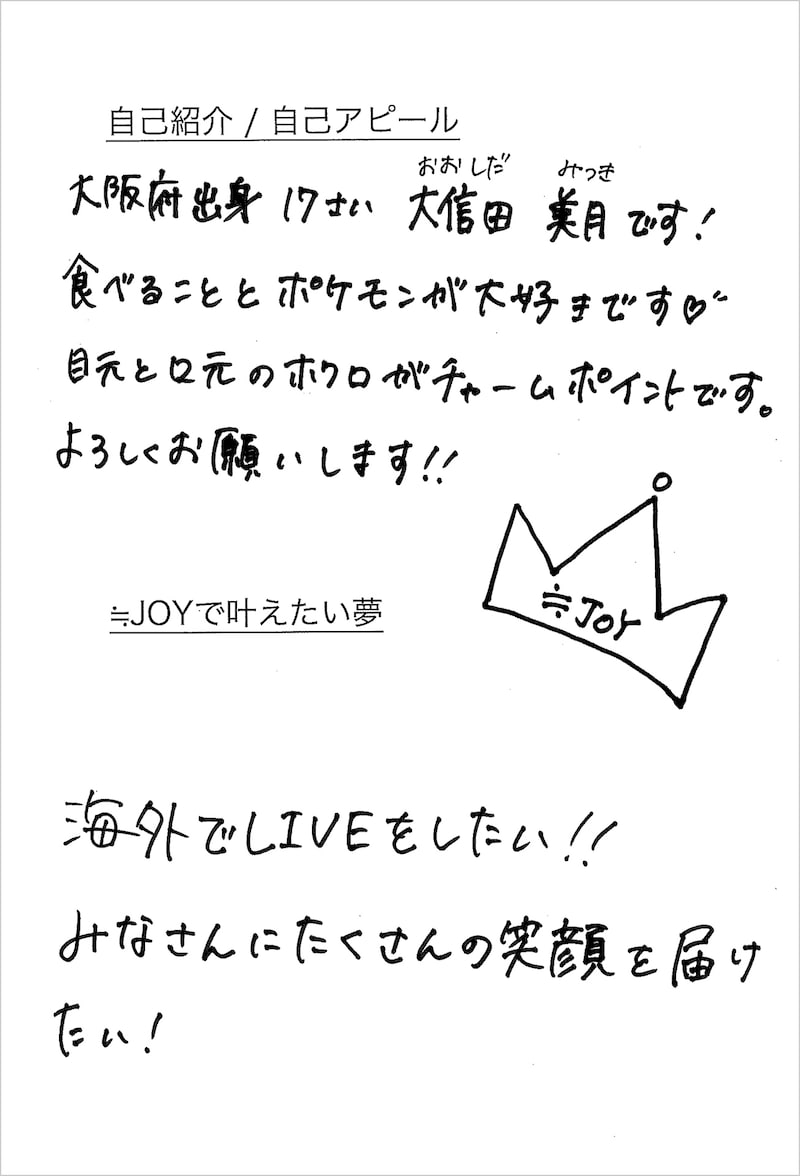 自己紹介 / 自己アピール
おおしだ みつき
大阪府出身 17さい 大信田 美月です!
食べることとポケモンが大好きです♡
目元と口元のホクロがチャームポイントです。
よろしくお願いします!!
≒JOY
≒JOYで叶えたい夢
海外でLIVEをしたい!!
みなさんにたくさんの笑顔を届け
たい!